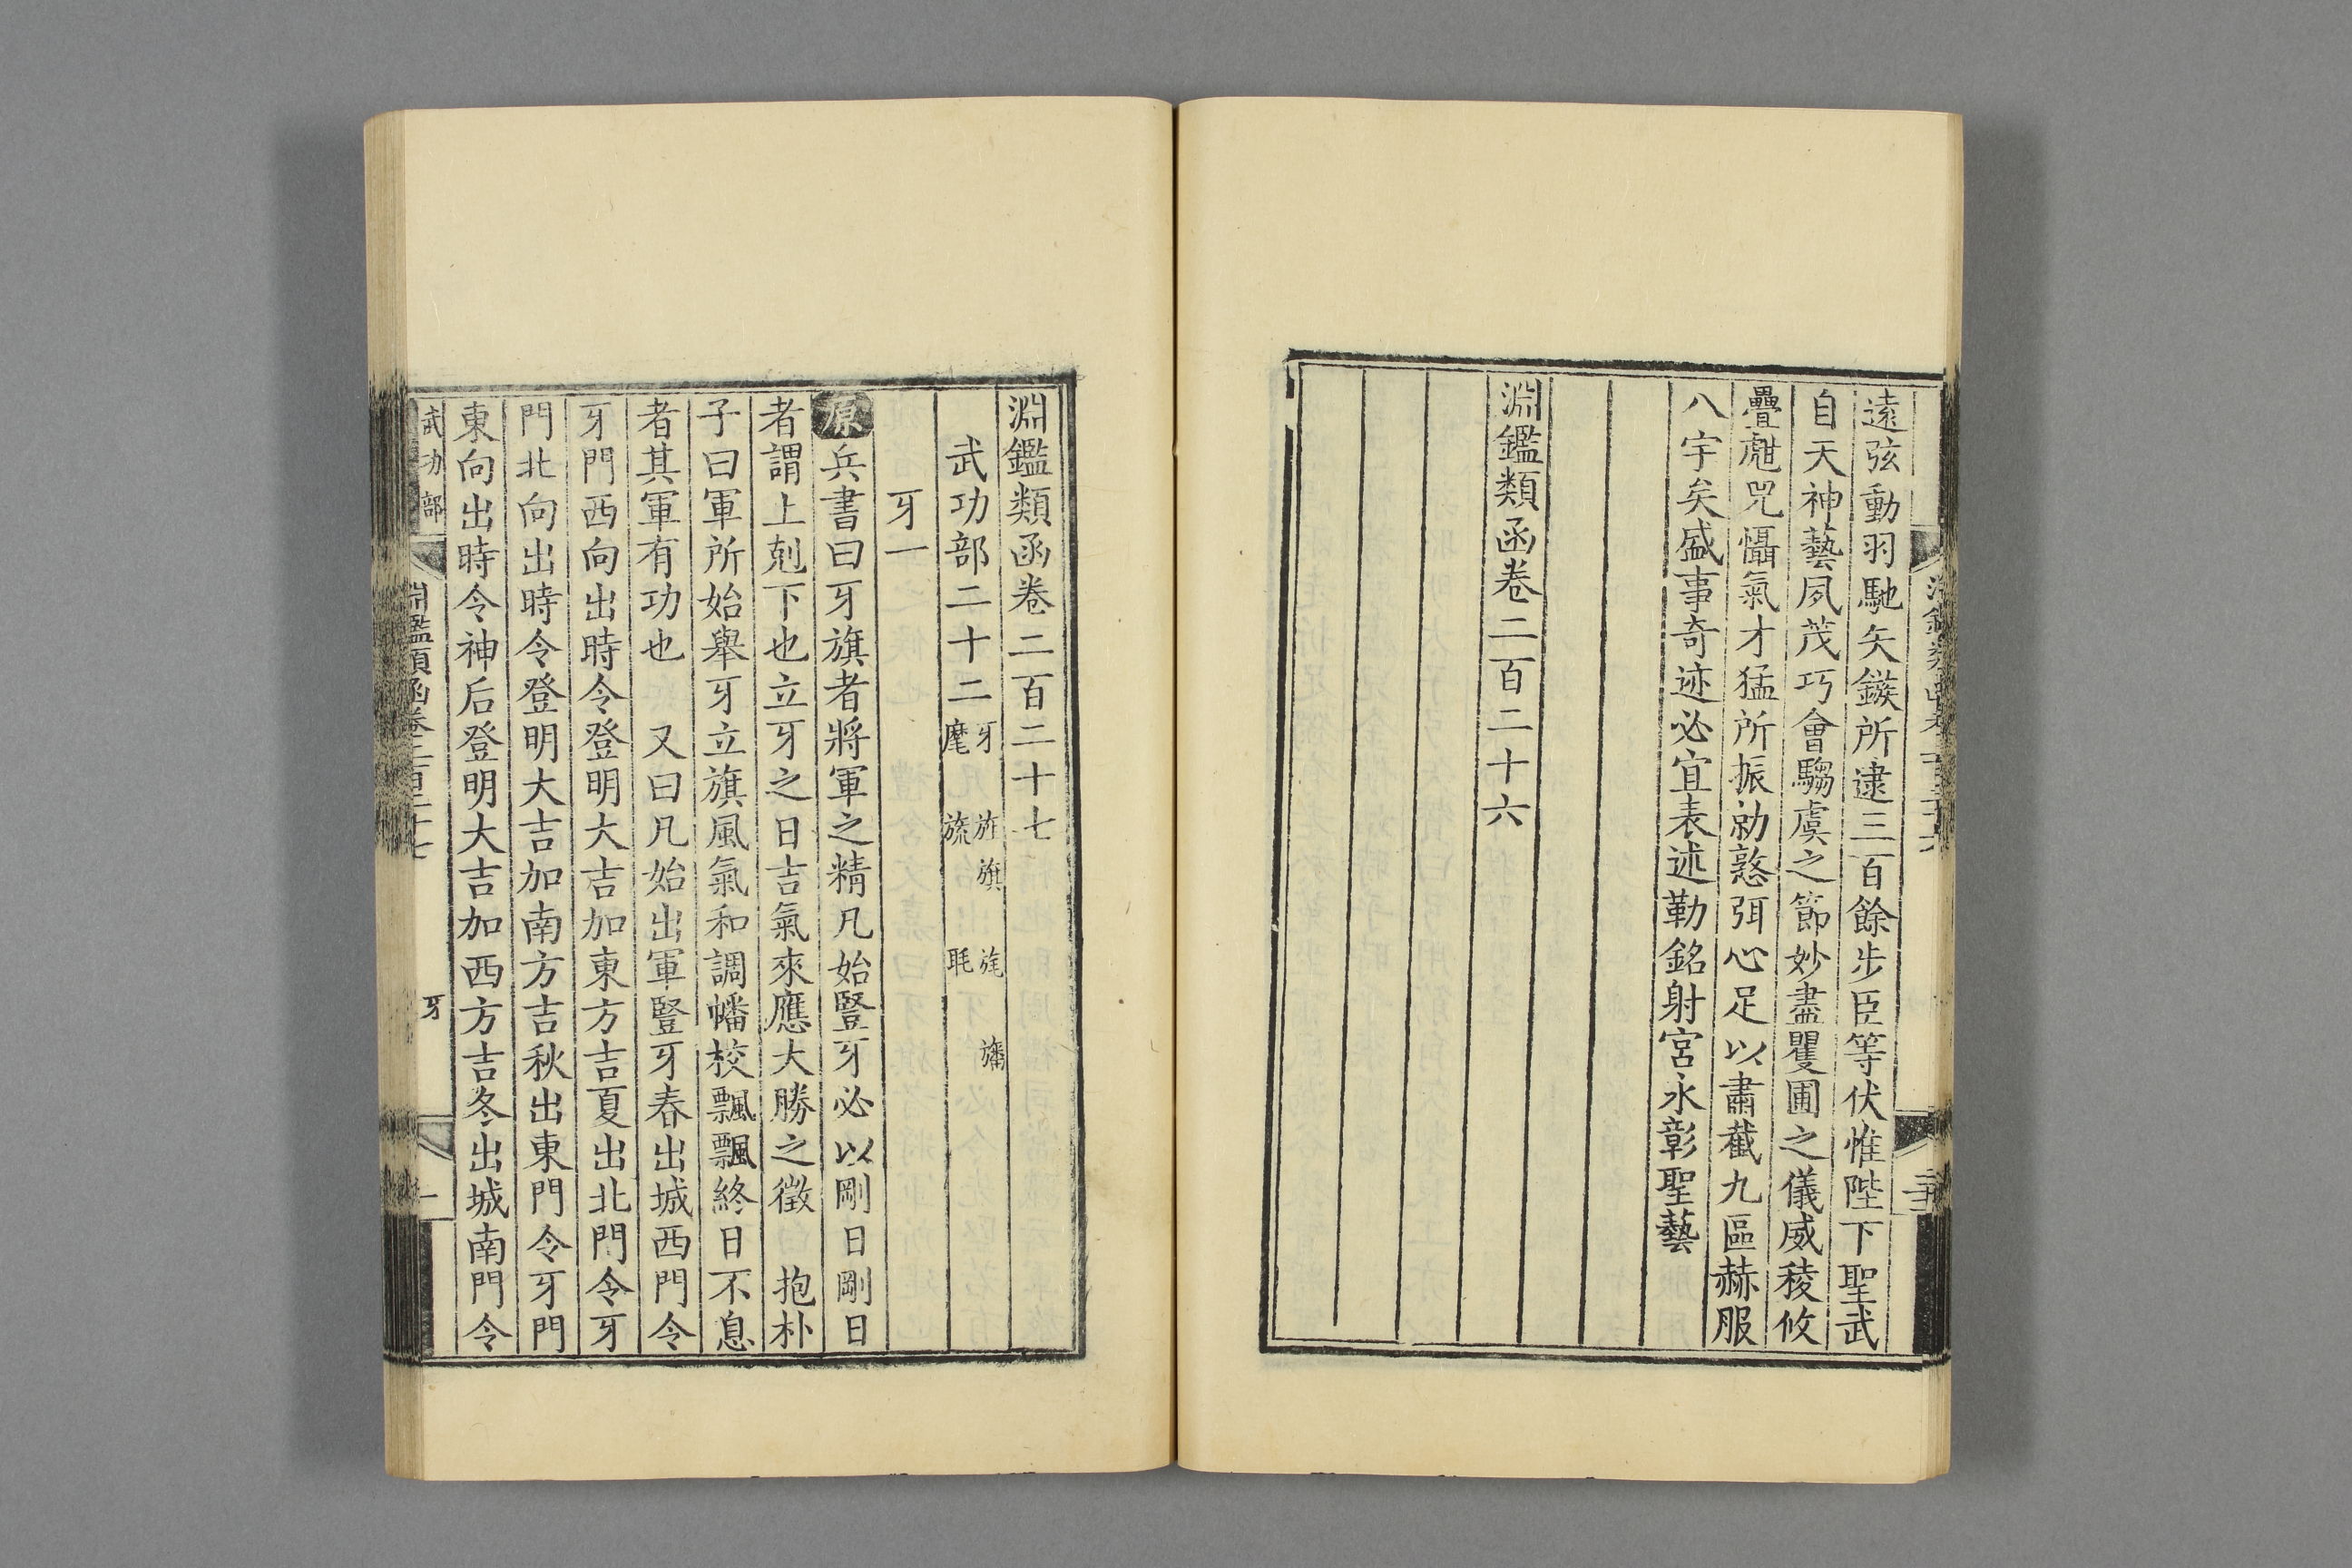 遠弦動羽馳矢鏃所逮三百餘步臣等伏惟陛下聖武
自天神藝夙茂巧會騶虞之節妙盡矍圃之儀威稜攸
疊虣兕懾氣才猛所振勍憝弭心足以肅截九區赫服
八宇矣盛事奇迹必宜表述勒銘射宮永彰聖藝
淵鑑類函卷二百二十六
淵鑑類函卷二百二十七
武功部二十二 牙 旌旗 旄 旛 麾 旒 毦
牙一
原兵書曰牙旗者將軍之精凡始豎牙必以剛日剛日
者謂上剋下也立牙之日吉氣來應大勝之徵 抱朴
子曰軍所始舉牙立旗風氣和調幡校飄飄終日不息
者其軍有功也 又曰凡始出軍豎牙春出城西門令
牙門西向出時令登明大吉加東方吉夏出北門令牙
門北向出時令登明大吉加南方吉秋出東門令牙門
東向出時令神后登明大吉加西方吉冬出城南門令
武功部 淵鑑類函卷二百二十七 牙 一